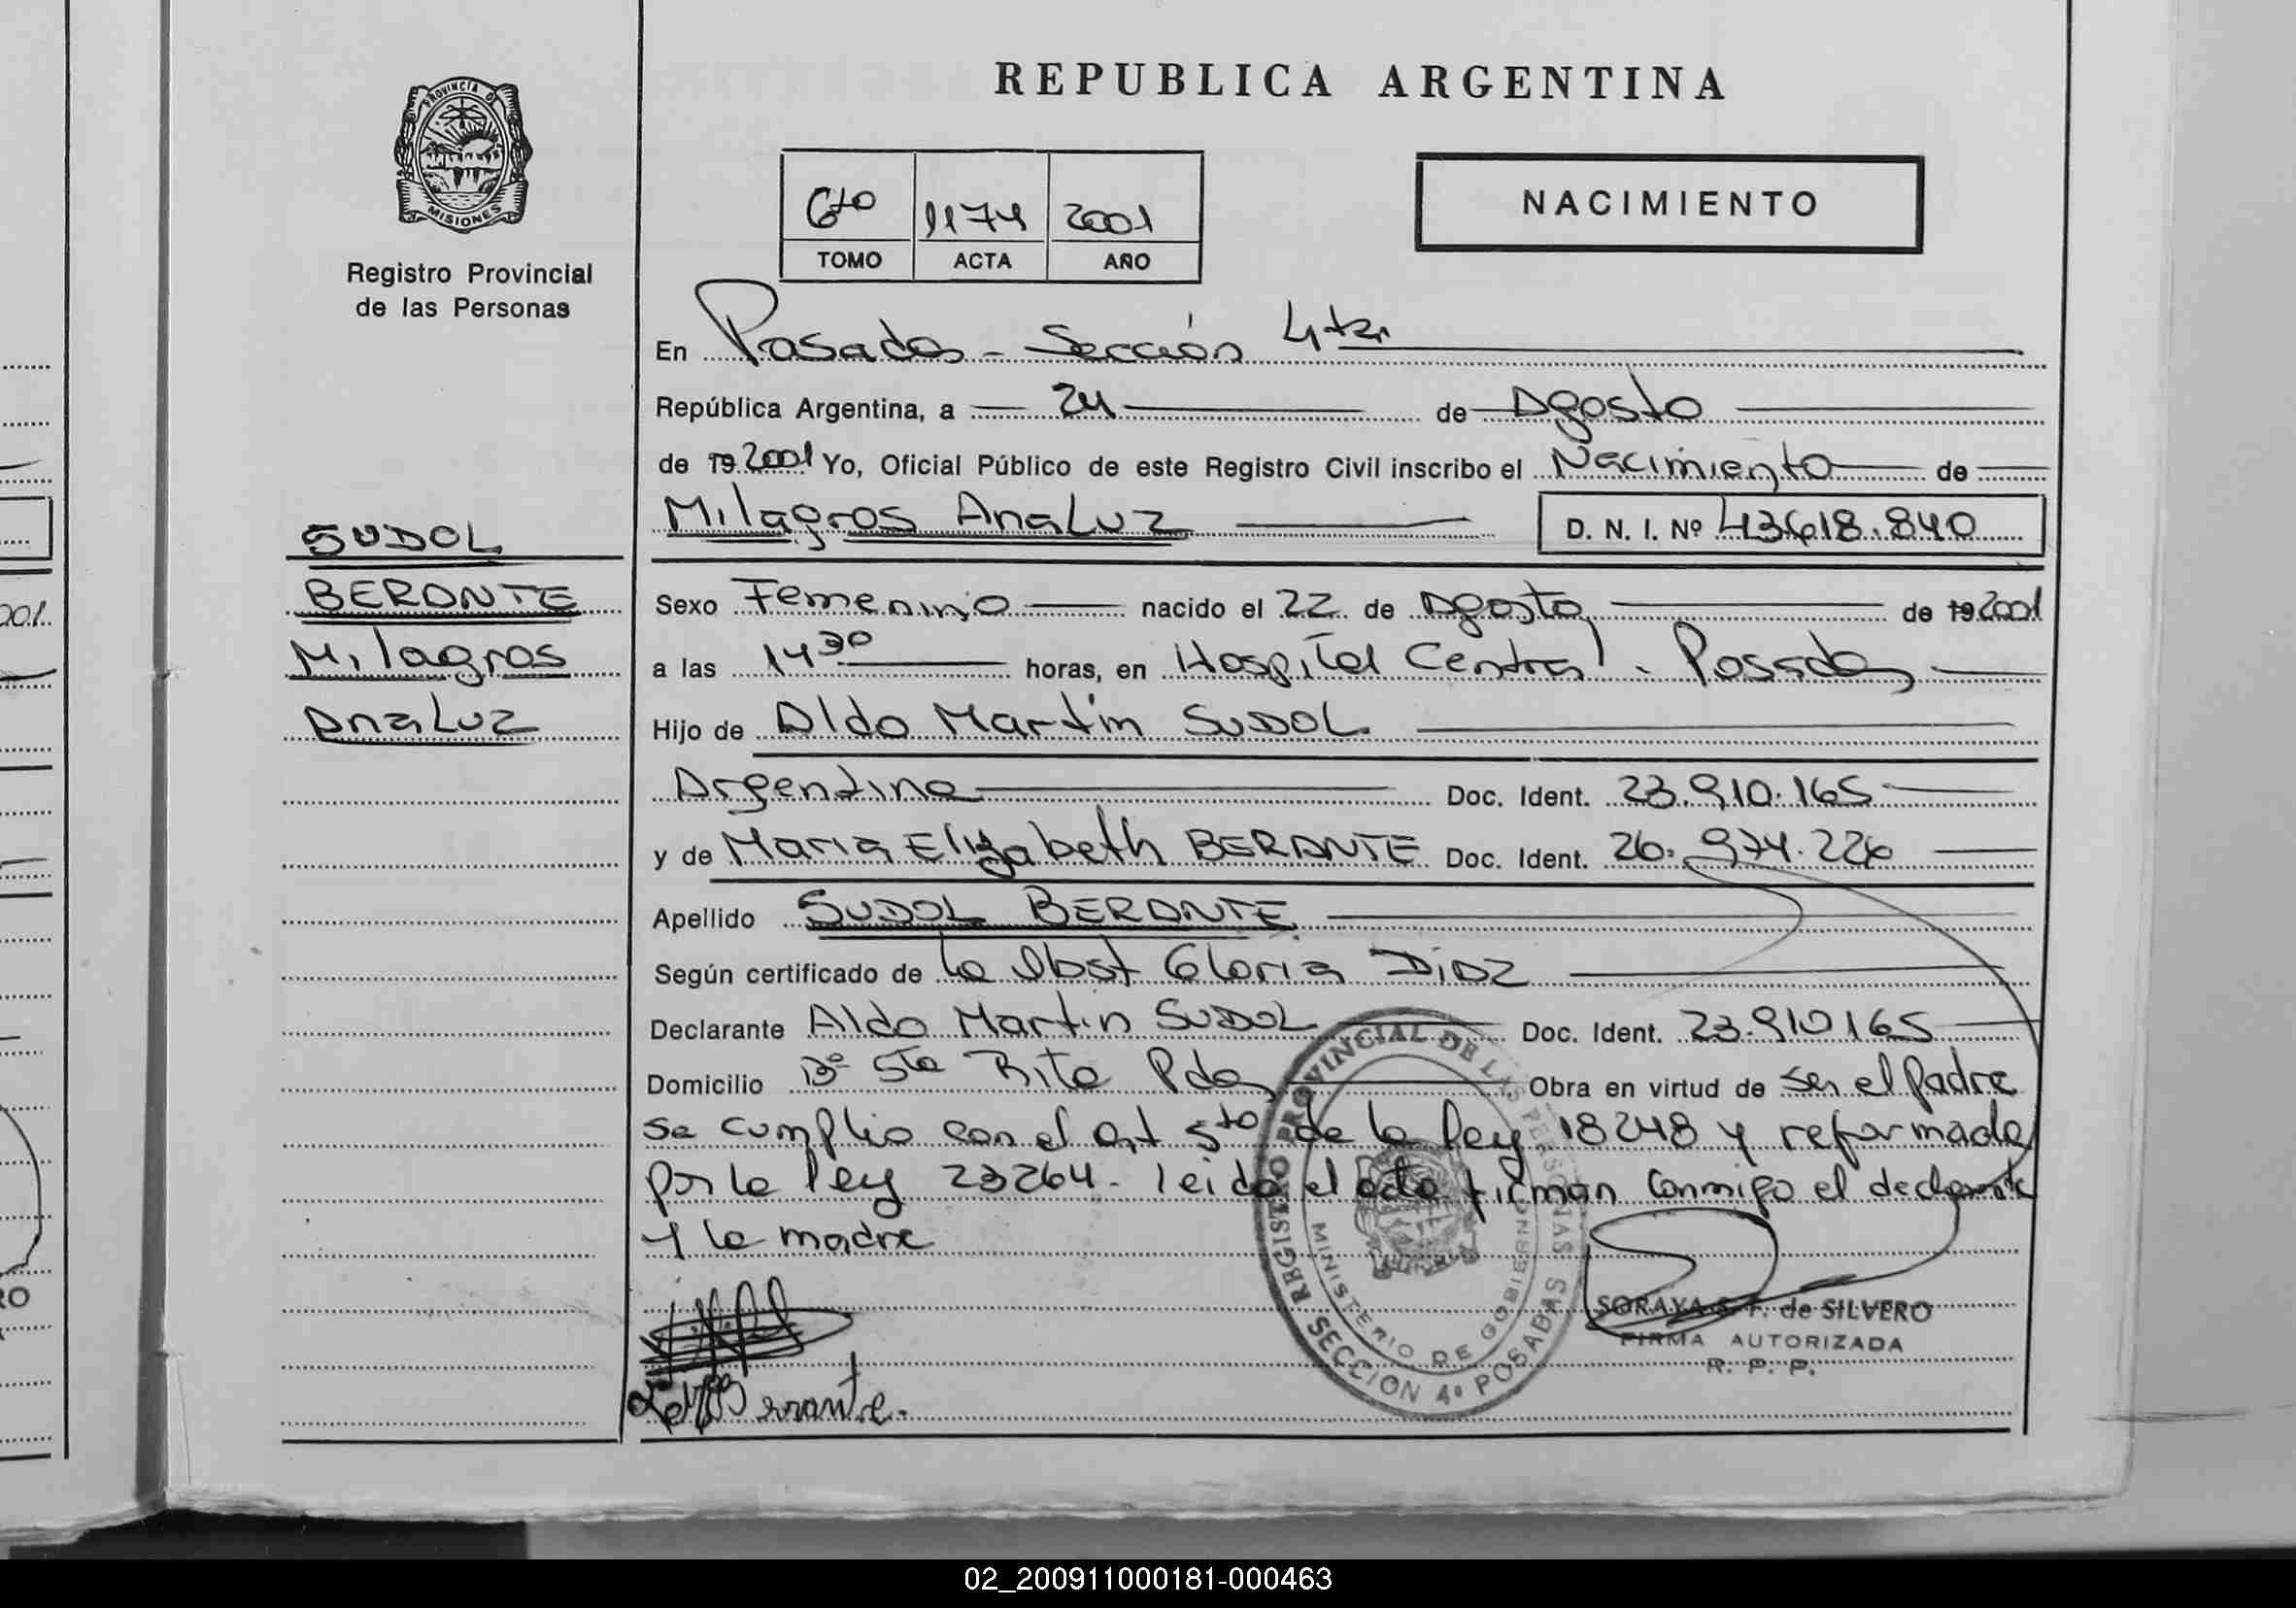 REPUBLICA ARGENTINA
PROVINCIA D
MISIONES
Registro Provincial
de las Personas
6to 1174 2001
TOMO ACTA AÑO
NACIMIENTO
En Posadas - Sección 4ta
República Argentina, a 24 de Agosto
de 19 2001 Yo, Oficial Público de este Registro Civil inscribo el Nacimiento de
Milagros AnaLuz D. N. I. Nº 43618.840
SUDOL
BERANTE
Milagros
AnaLuz
Sexo Femenino nacido el 22 de Agosto de 19 2001
a las 14 30 horas, en Hospital Central - Posadas
Hijo de Aldo Martín SUDOL
Argentina Doc. Ident. 23.910.165
y de Maria Elizabeth BERANTE Doc. Ident. 26.974.226
Apellido SUDOL BERANTE
Según certificado de la Obst Gloria Diaz
Declarante Aldo Martin SUDOL Doc. Ident. 23.910165
Domicilio Bº Sta Rita Pdas Obra en virtud de ser el padre
se cumplio con el art 5to de la ley 18248 y reformada
por la ley 23264 - leida el acta firman conmigo el declarante
y la madre
REGISTRO PROVINCIAL DE LAS PERSONAS
MINISTERIO DE GOBIERNO
SECCION 4º POSADAS
SORAYA S. F. de SILVERO
FIRMA AUTORIZADA
R. P. P.
001
RO
02_200911000181-000463